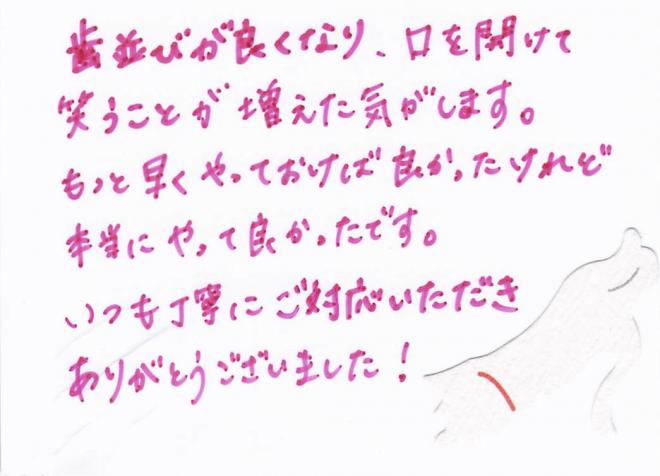 歯並びが良くなり、口を開けて
笑うことが増えた気がします。
もっと早くやっておけば良かったけれど
本当にやって良かったです。
いつも丁寧にご対応いただき
ありがとうございました！